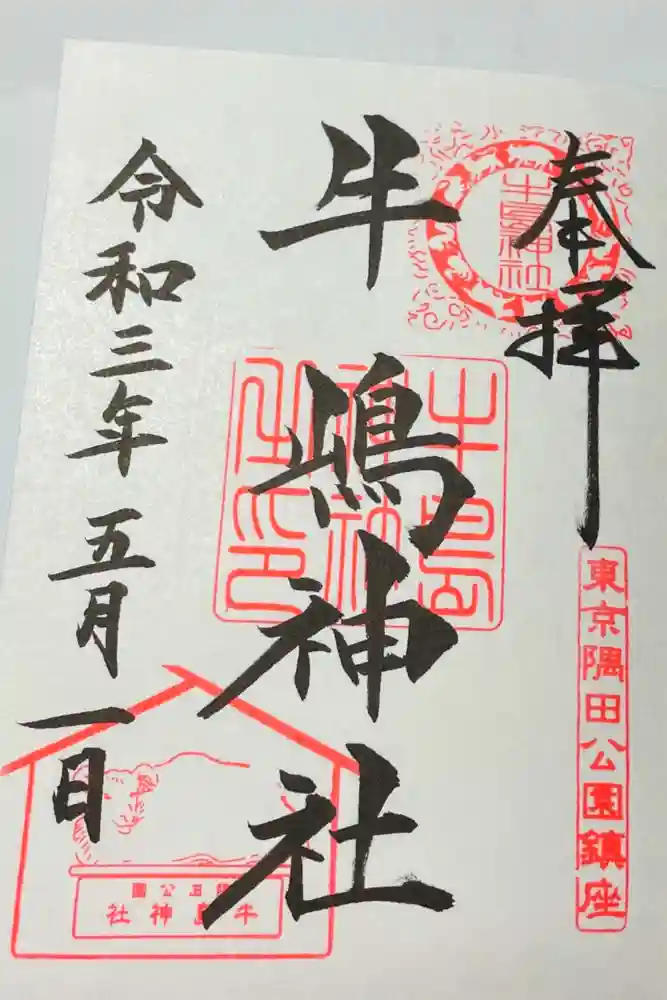 奉拝
牛島神社
東京隅田公園鎮座
牛嶋神社
牛島神社之印
令和三年五月一日
牛島神社